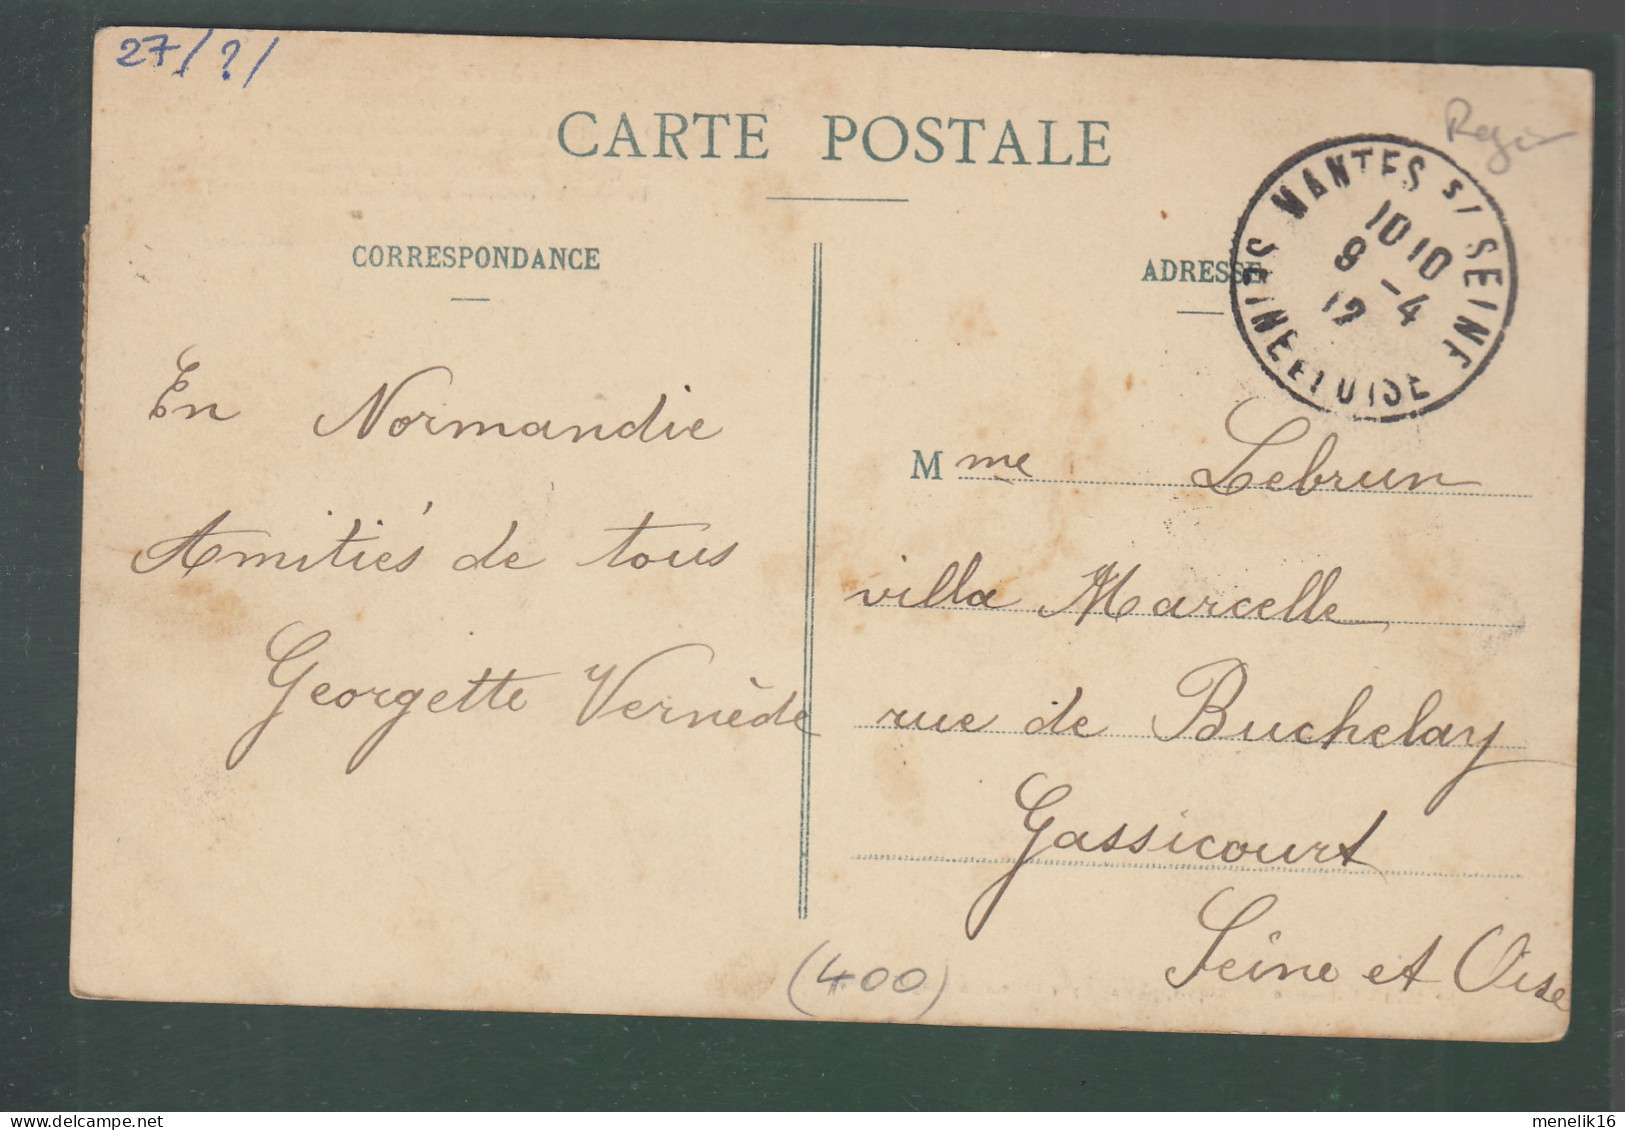 27/?/
CARTE POSTALE
CORRESPONDANCE
ADRESSE
MANTES S/ SEINE
10 10
9 -4
12
SEINE ET OISE
En Normandie
Amitiés de tous
Georgette Vernède
Mme Lebrun
villa Marcelle
rue de Buchelay
Gassicourt
Seine et Oise
(400)
menelik16